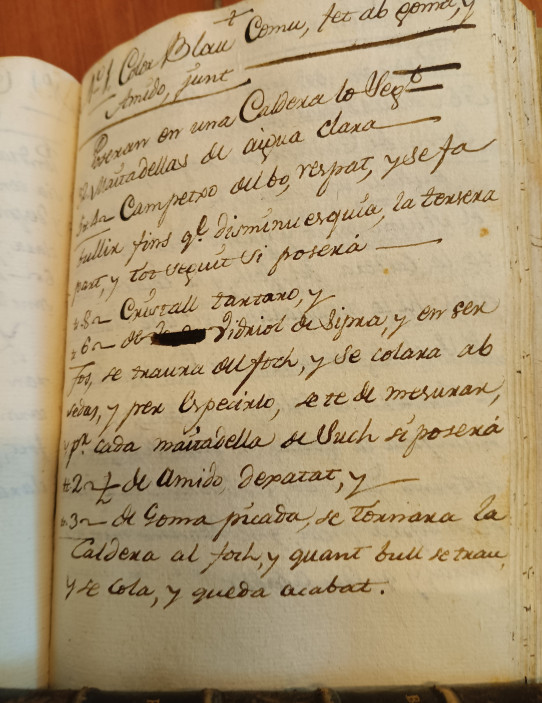 Nº 1. Color Blau Comú, fet ab goma, y
Amido, junt
Poseran en una Caldera lo Segt
Maitadellas de aigua clara
Campetxo del bo, respat, y se fa
bullir fins qe. disminuesquia, la tersera
part, y tot seguit si poserá
8 Cristall tartaro, y
6 de Vidriol de Sipra, y en ser
fos, se traura del foch, y se colara ab
sedas, y per especirlo, se te de mesurar,
y pr. cada maitadella de Such si poserá
2 1/2 de Amido, dexatat, y
3 de Goma picada, se tornara la
Caldera al foch, y quant bull se trau,
y se cola, y queda acabat.